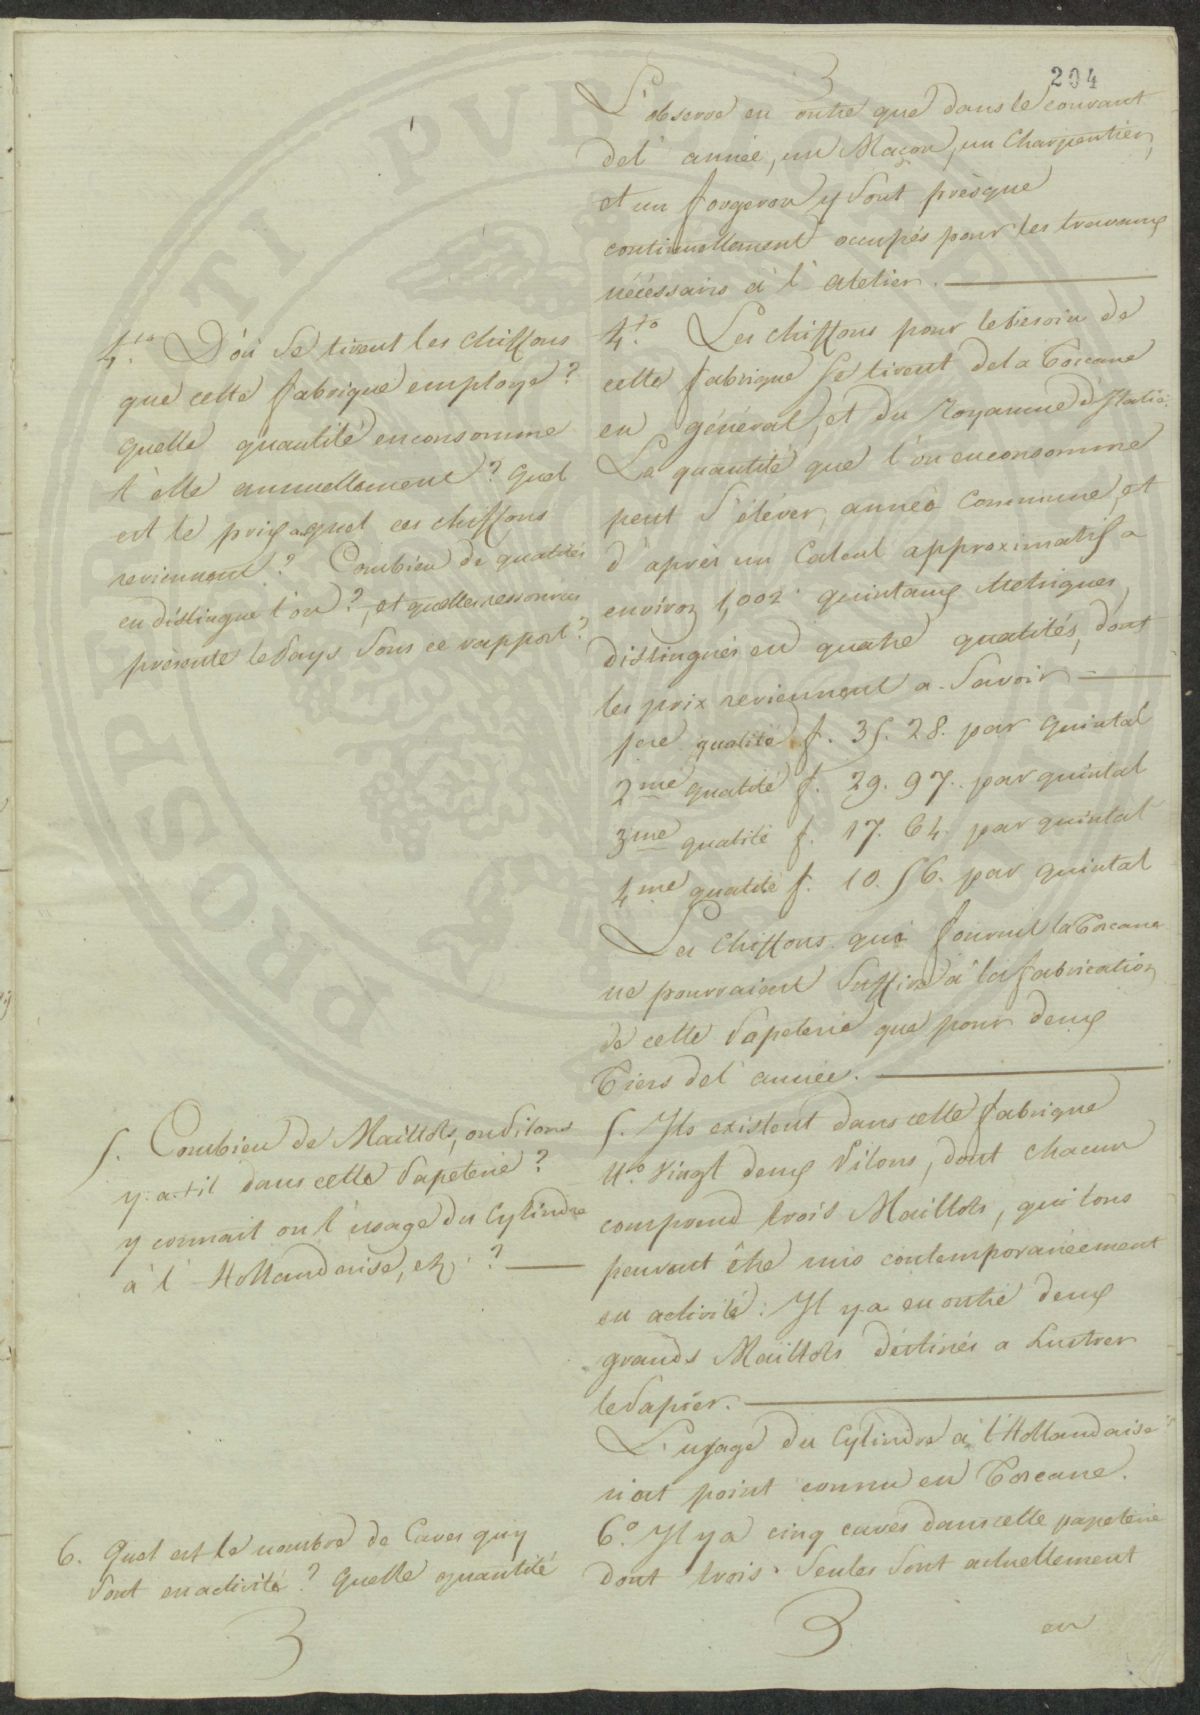 3
204
L'observe en outre que dans le courant
del' année, un Maçon, un Charpentier,
et un forgeron y sont prèsque
continuellement occupés pour les travaux
nécéssairs à l' atelier.
4.to D'où se tirent les chiffons
que cette fabrique employe?
Quelle quantité en consomme
t'elle annuellement? Quel
est le prix aquel ces chiffons
reviennent? Combien de qualités
en distingue l'on?, et quelles ressources
présente le Pays sous ce rapport?
4.to Les chiffons pour le besoin de
cette fabrique se tirent dela Toscane
en général, et du Royaume d'Italie.
La quantité que l'on en consomme
peut s'éléver, année commune, et
d'après un Calcul approximatif a
environ 1,002 quintaux Metriques,
distingués en quatre qualités, dont
les prix reviennent a Savoir
1ere qualité f. 35. 28. par Quintal
2me qualité f. 29. 97. par quintal
3me qualité f. 17. 64. par quintal
4me qualité f. 10. 56. par quintal
Les Chiffons qui fournit la Toscane
ne pourraient suffire à la fabrication
de cette Papeterie que pour deux
Tiers del' année.
5. Combien de Maillots, ou Pilons
y-a-t-il dans cette Papeterie?
y connait on l'usage du Cylindre
à l' Hollandaise, etc.?
5. Ils existent dans cette fabrique
N.o Vingt deux Pilons, dont chacun
comprend trois Maillots, qui tous
peuvent être mis contemporanéement
en activité: Il y a en outre deux
grands Maillots déstinés a Lustrer
le Papier.
L'usage du Cylindre à l'Hollandaise
n'est point connu en Toscane.
6. Quel est le nombre de Caves qu'y
Sont en activité? Quelle quantité
6.o Il y a cinq caves dans cette papeterie
dont trois Seules Sont actuellement
3
3
en
PROSPERITATI PVBLICAE